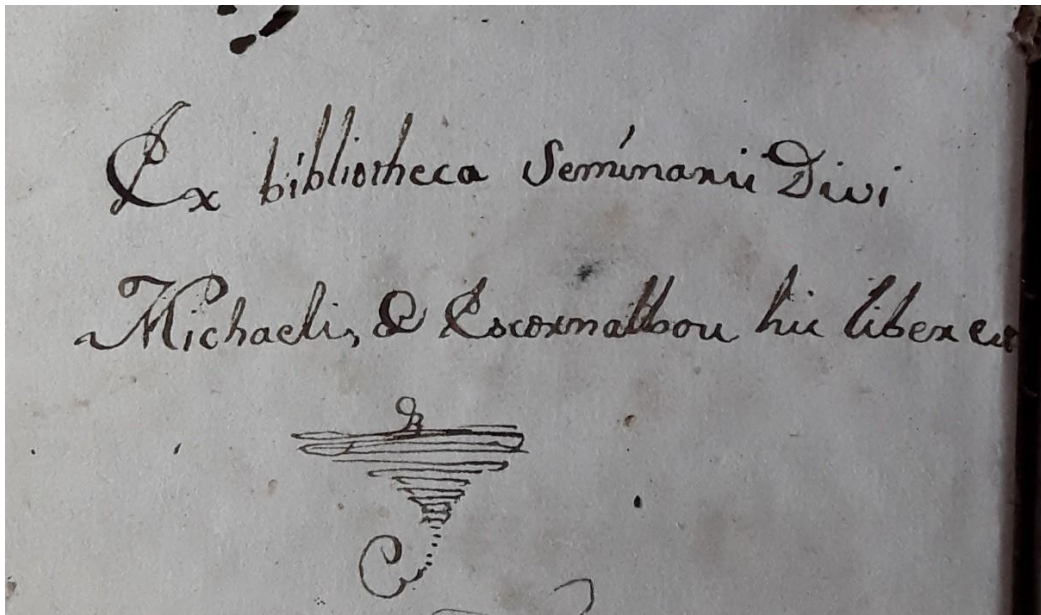 Ex bibliotheca Seminarii Divi
Michaelis, & Escornalbou hic liber est